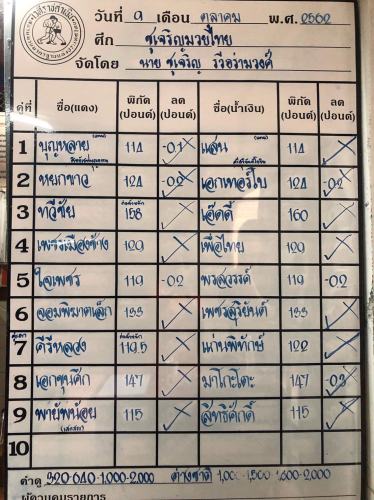 วันที่ 9 เดือน ตุลาคม พ.ศ. 2562
ศึก ชูเจริญมวยไทย
จัดโดย นาย ชูเจริญ รวีอร่ามวงศ์
คู่ที่ ชื่อ(แดง) พิกัด(ปอนด์) ลด(ปอนด์) ชื่อ(น้ำเงิน) พิกัด(ปอนด์) ลด(ปอนด์)
1 บุญหลาย 114 -0.1 แสน 114
2 หยกขาว 124 -0.2 เอกเทอร์โบ 124 -0.2
3 ทวีชัย 158 เอ๊ดดี้ 160
4 เพชรเมืองช้าง 129 เพื่อไทย 129
5 ใจเพชร 119 -0.2 พรสวรรค์ 119 -0.2
6 จอมพิฆาตเล็ก 133 เพชรสุริยันต์ 133
7 คีรีหลวง 119.5 แก่นพิทักษ์ 122
8 เอกขุนศึก 147 มาโกะโตะ 147 -0.3
9 พายัพน้อย 115 สิทธิศักดิ์ 115
10
ค่าดู 320-640-1,000-2,000 ต่างชาติ 1,000-1,500-1,800-2,000
ผู้ควบคุมรายการ